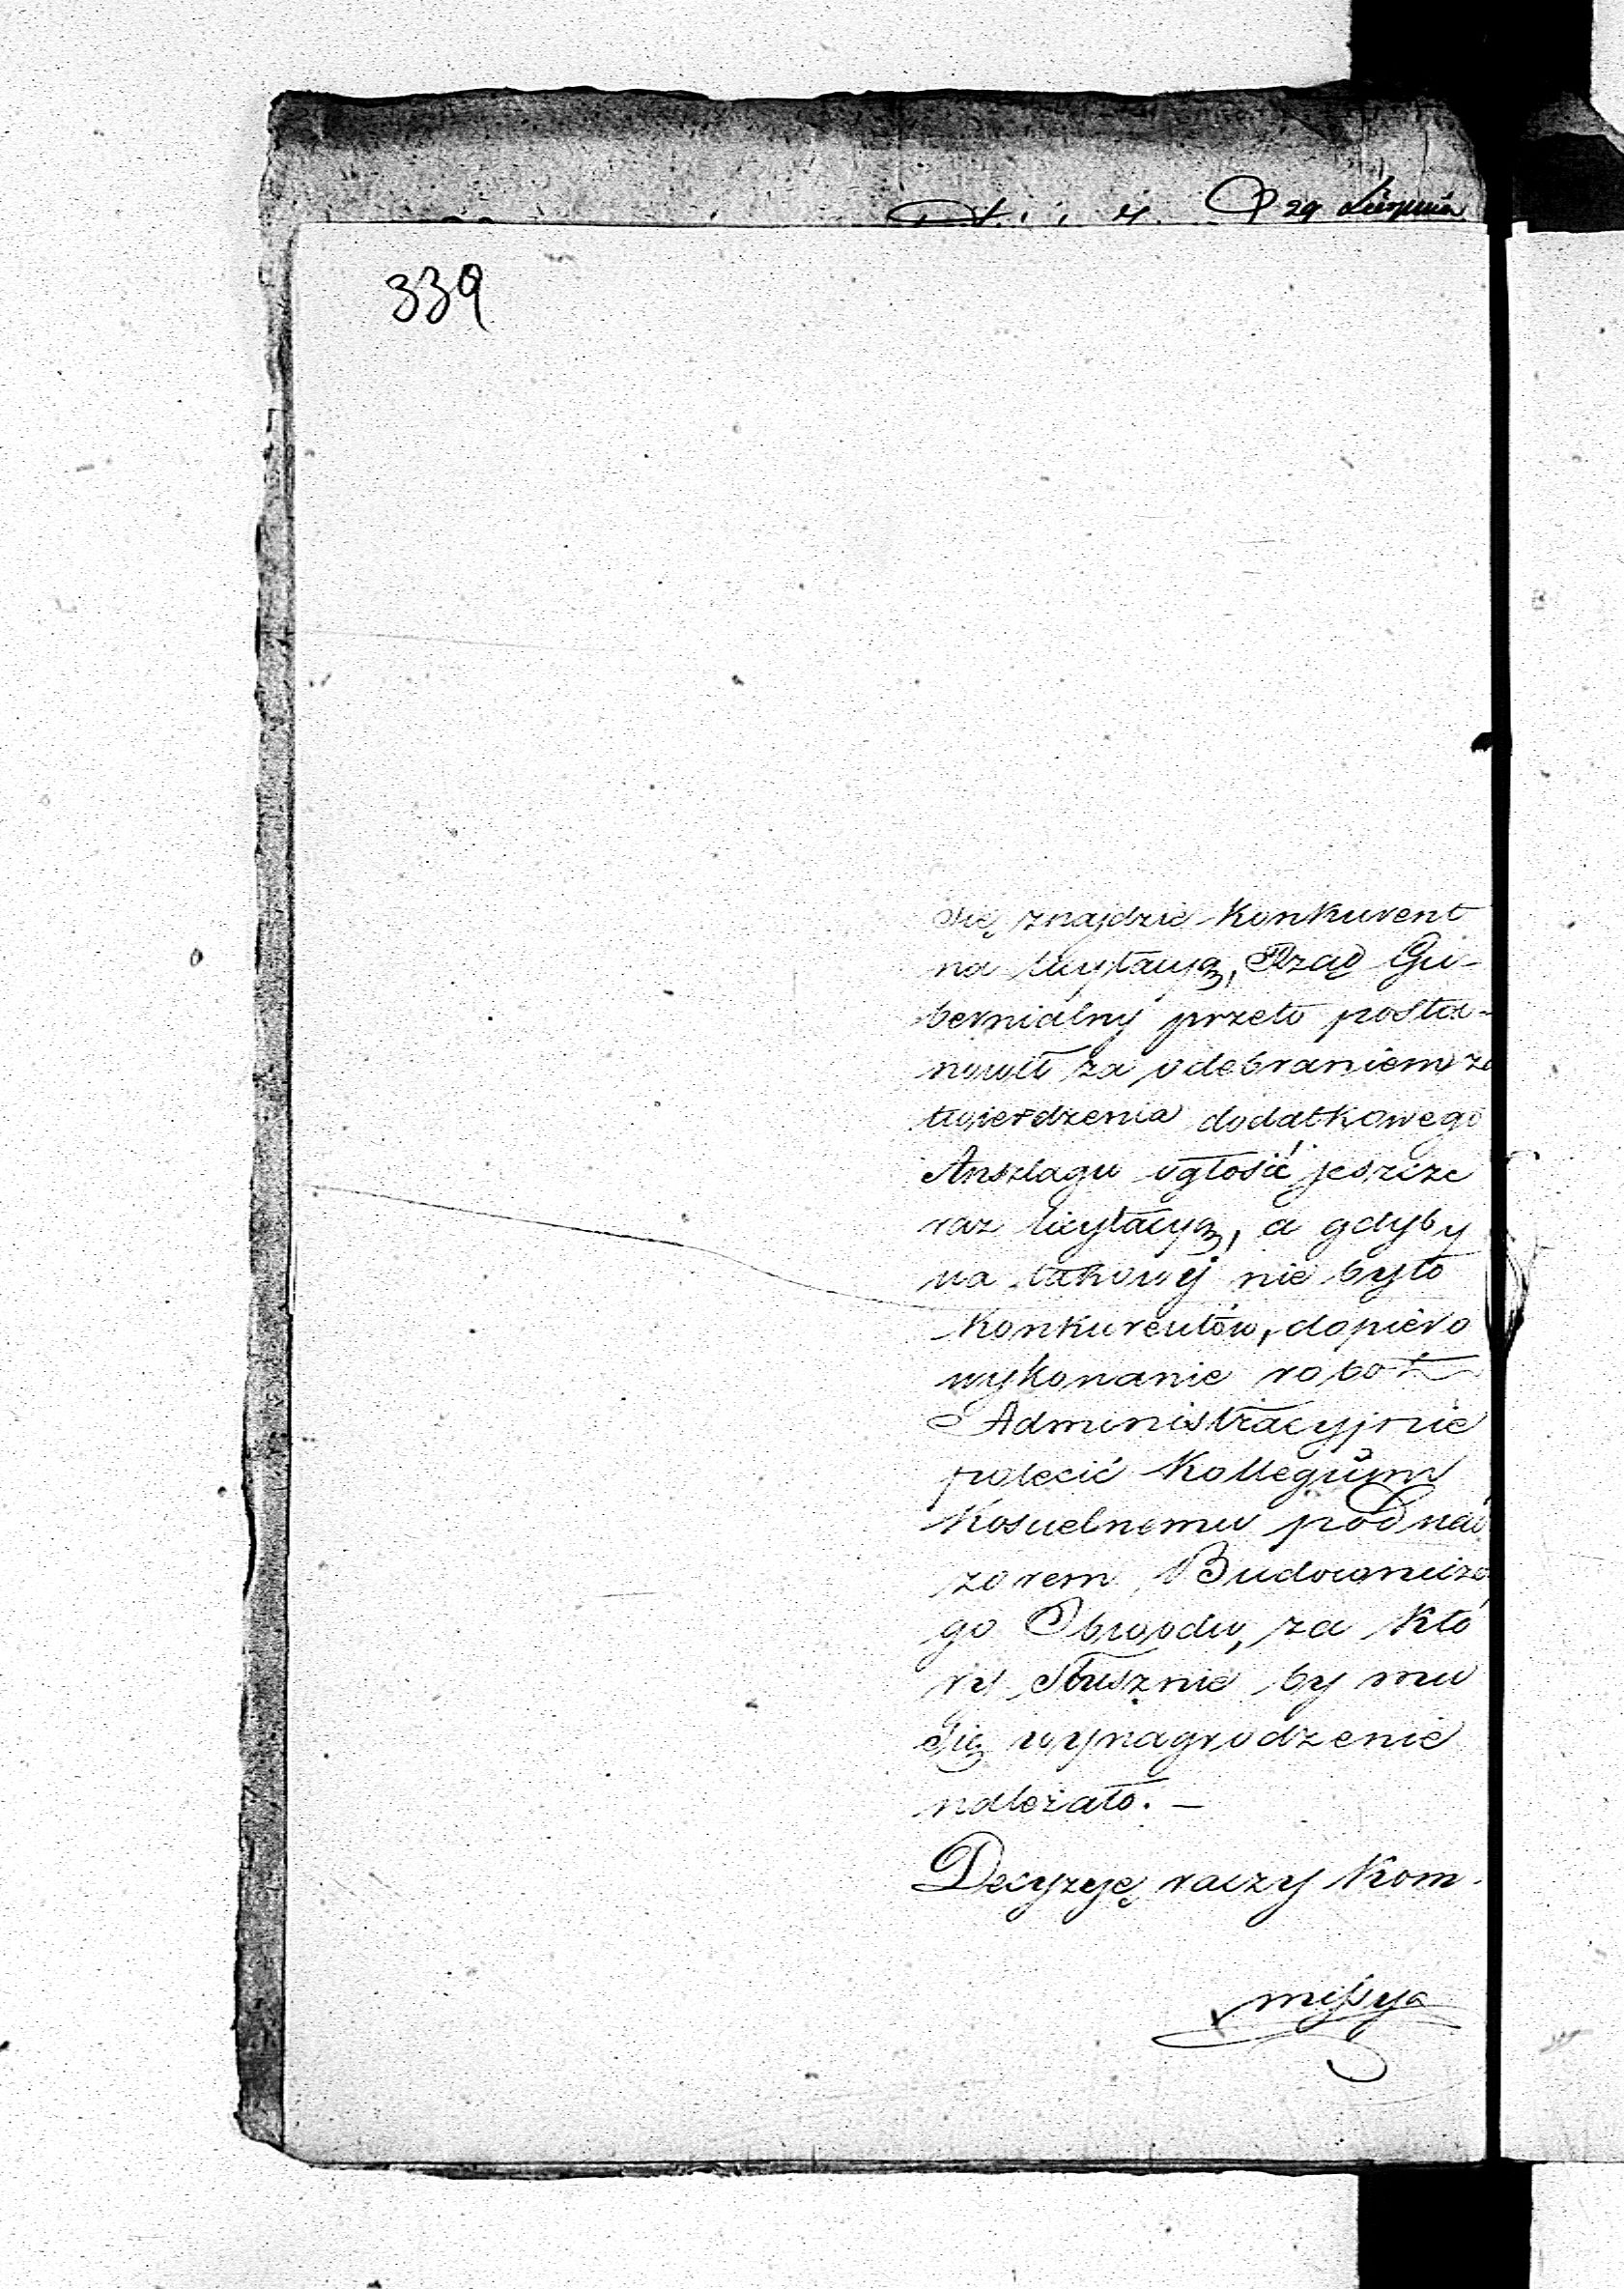 29 Sierpnia
339
się znajdzie Konkurent
na licytacyą, Rząd Gu-
bernialny przeto posta-
nowił za odebraniem za
twierdzenia dodatkowego
Anszlagu ogłosić jeszcze
raz licytacyą, a gdyby
na takowej nie było
Konkurentów, dopiero
wykonanie robot
Administracyjnie
polecić Kollegium
Kościelnemu pod nad
zorem Budowniczo
go Obwodu, za któ
ry słusznie by mu
się wynagrodzenie
należało. —
Decyzyę raczy Kom-
missya